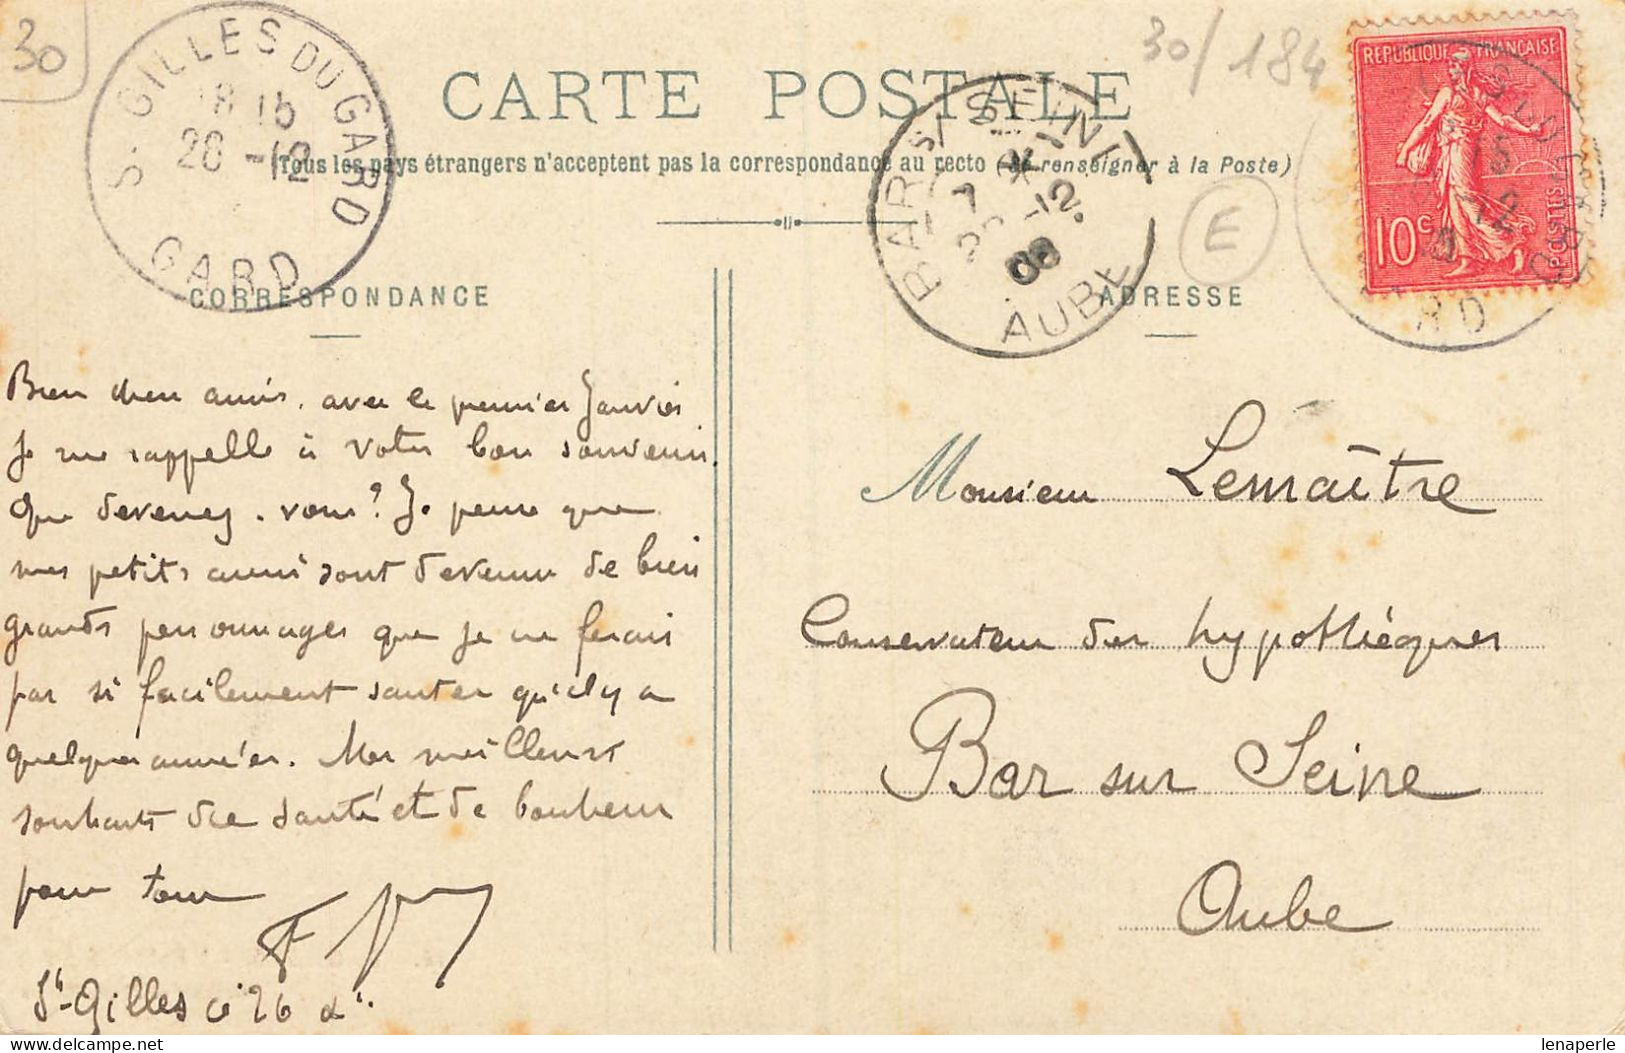 30
30/184
S-GILLES DU GARD
18 15
26 -12
GARD
CARTE POSTALE
Tous les pays étrangers n'acceptent pas la correspondance au recto (Se renseigner à la Poste)
BAR S/ SEINE
-12
08
AUBE
E
REPUBLIQUE FRANÇAISE
10c
POSTES
CORRESPONDANCE
ADRESSE
Bien chers amis. avec le premier Janvier
Je me rappelle à votre bon souvenir.
Que devenez-vous? Je pense que
mes petits amis sont devenus de bien
grands personnages que je ne ferais
pas si facilement sauter qu'il y a
quelques années. Mes meilleurs
souhaits de santé et de bonheur
pour tous
St-Gilles ce 26 Xbre
Monsieur Lemaître
Conservateur des hypothèques
Bar sur Seine
Aube
lenaperle